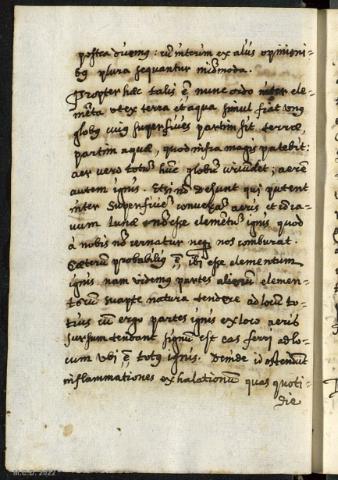 postea dicemus: ubi interim ex aliis opinioni-
bus plura sequantur incommoda.
Propter hæc talis ē nunc ordo inter ele-
mēta ut ex terra et aqua simul fiat unus
globus cuius superficies partim sit terræ,
partim aquæ, quod infra magis patebit:
aer vero totū hūc globū circūdet; aerem
autem ignis. Etsi nō desunt qui putent
inter superficiē convexā aeris et cōca-
vum Lunæ nō esse elemētū ignis quod
à nobis nō cernatur neq nos comburat.
Cæterum probabilius ē, ibi esse elementum
ignis. nam videmus partes aliorū elemen-
torum suapte natura tendere ad locū to-
tius cū ergo partes ignis ex loco aeris
sursum tendant signū est eas ferri ad lo-
cum ubi ē totus ignis. Deinde id ostendunt
inflammationes exhalationum quas quoti-
die